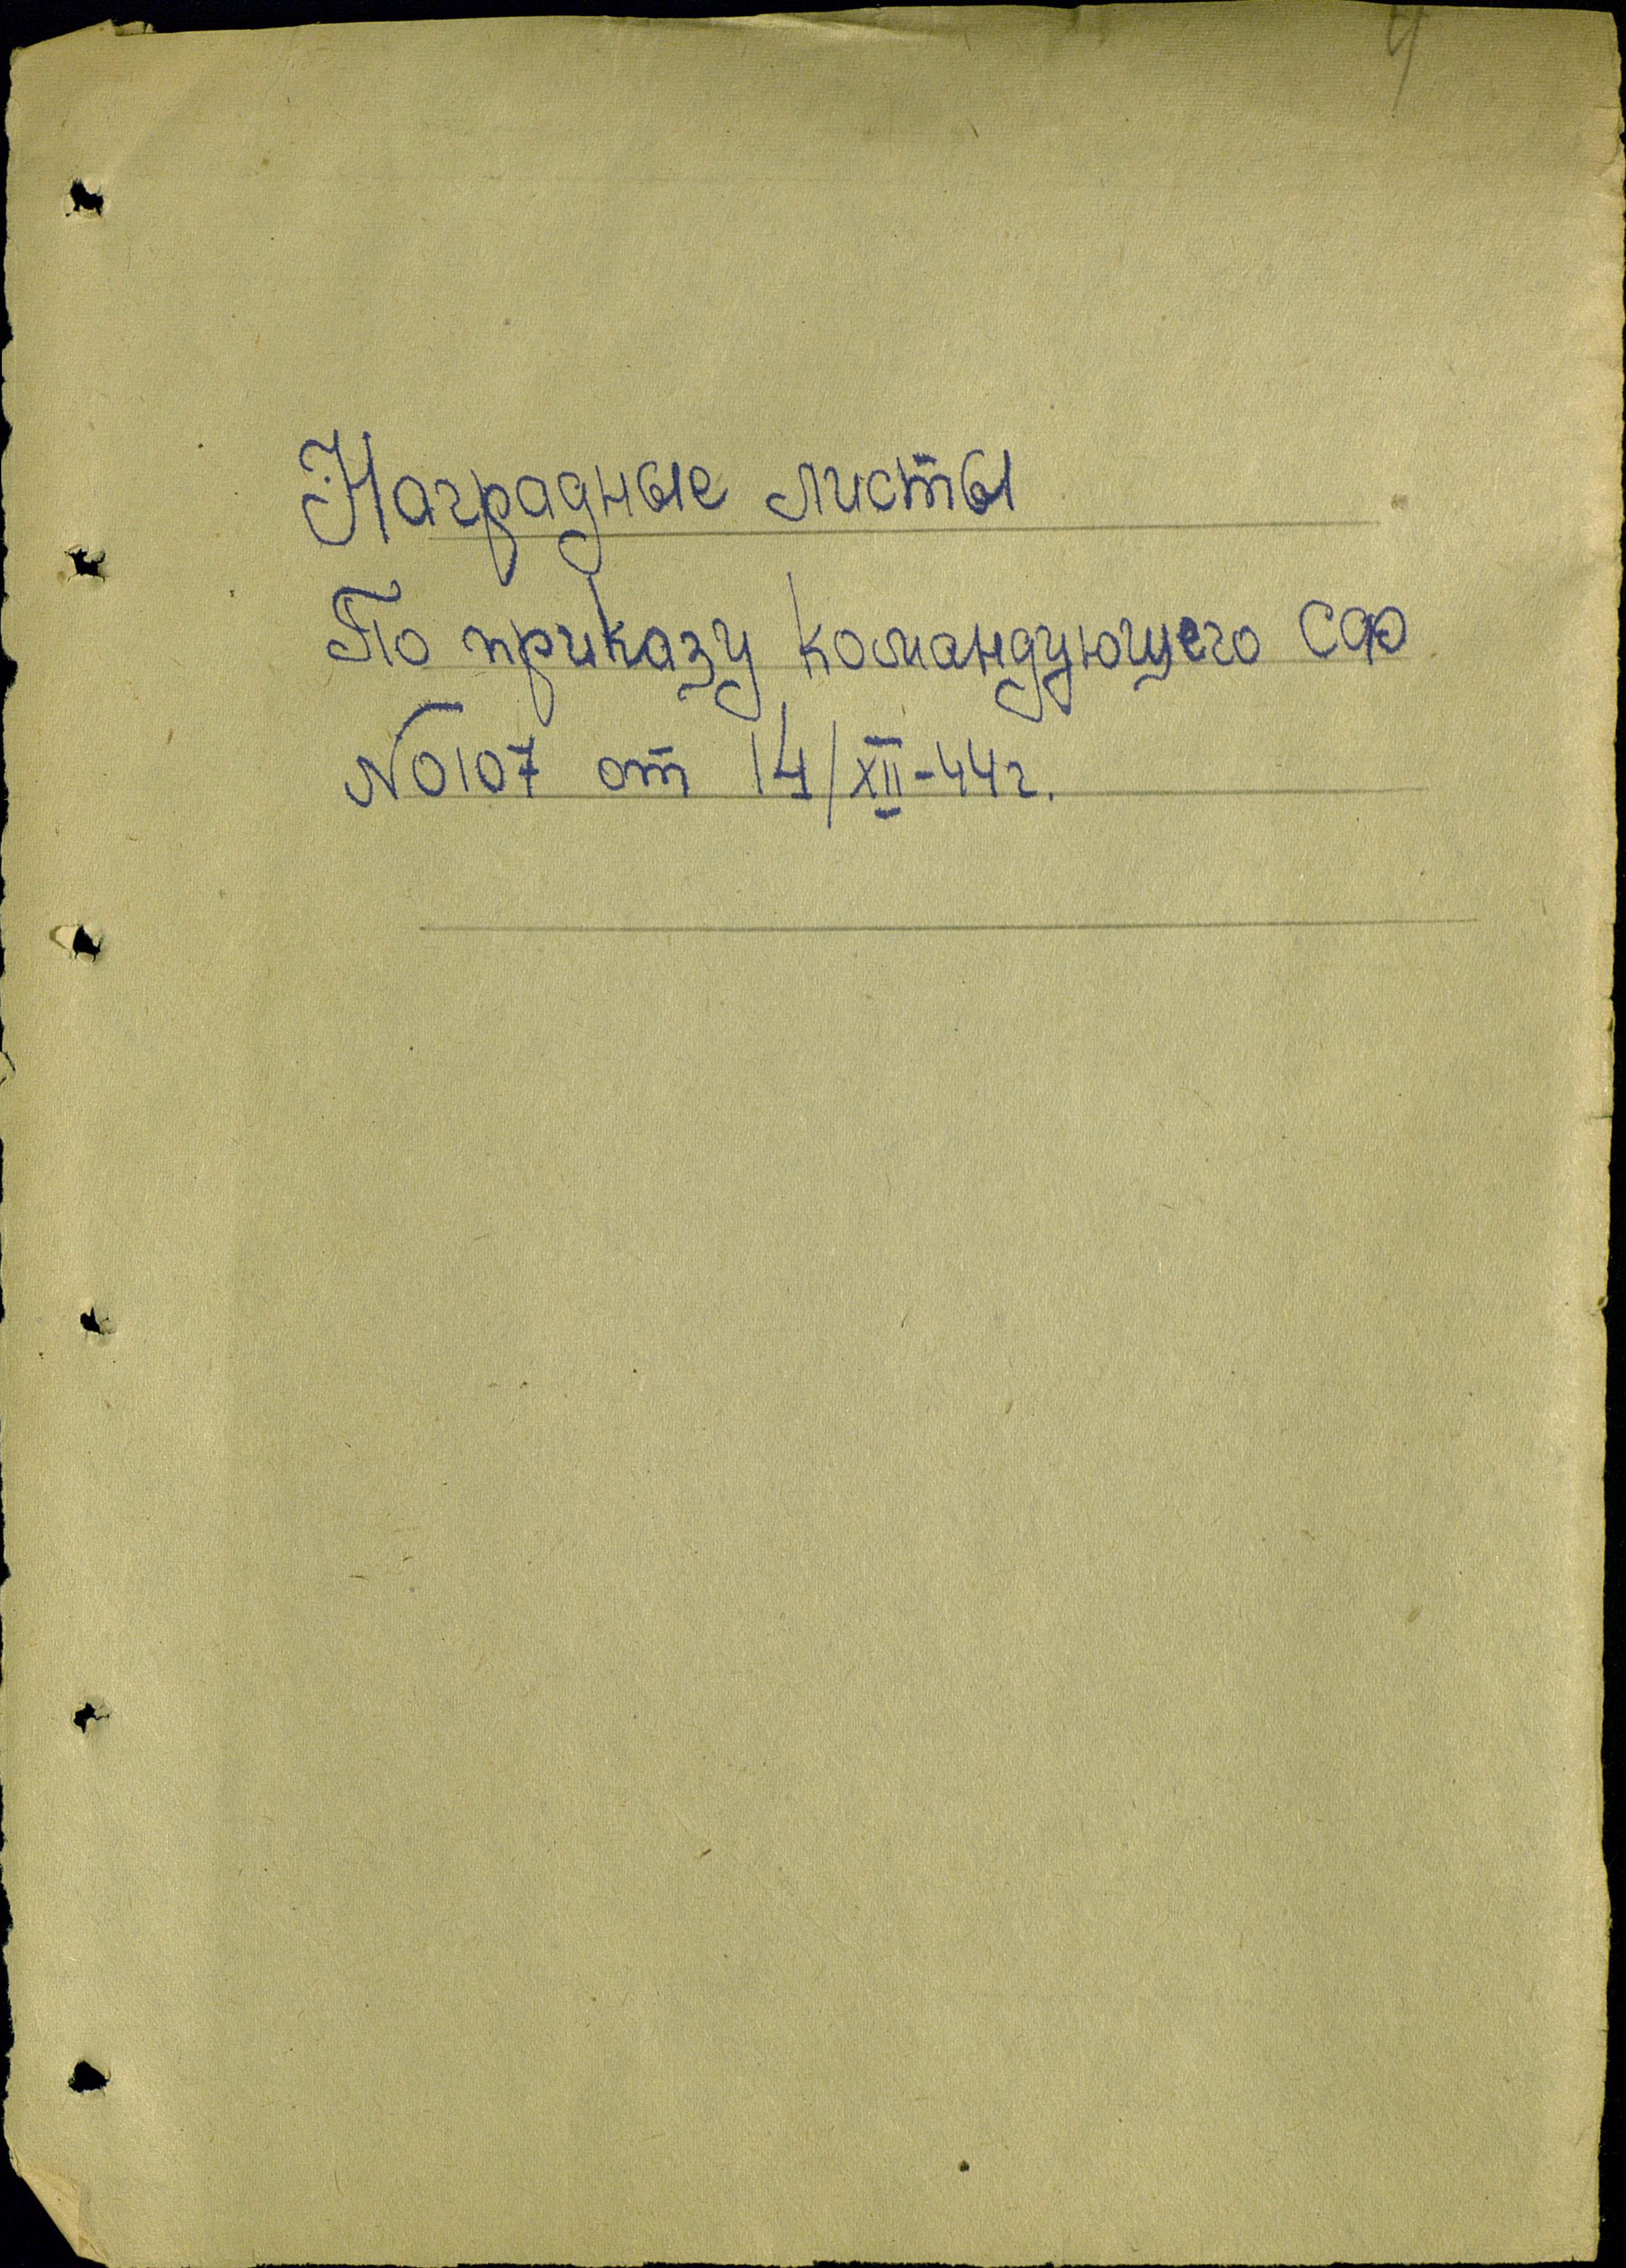 Наградные листы
По приказу командующего СФ
N 0107 от 14/XII-44г.